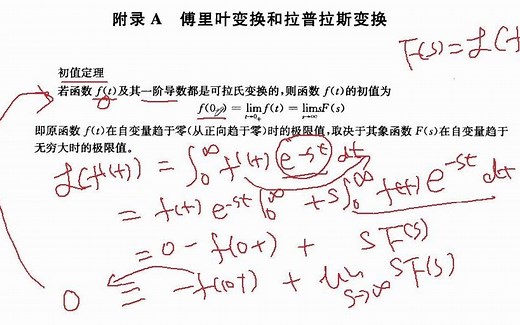 附录 A 傅里叶变换和拉普拉斯变换
F(s)=L(f
初值定理
若函数 f(t)及其一阶导数都是可拉氏变换的,则函数 f(t)的初值为
f(0₊)=lim f(t)=lim sF(s)
t→0₊ s→∞
即原函数 f(t)在自变量趋于零(从正向趋于零)时的极限值,取决于其象函数 F(s)在自变量趋于
无穷大时的极限值。
L(f'(t)) = ∫₀^∞ f'(t) e^-st dt
= f(t) e^-st |₀^∞ + s∫₀^∞ f(t) e^-st dt
= 0 - f(0+) + sF(s)
0 = -f(0+) + lim s→∞ sF(s)